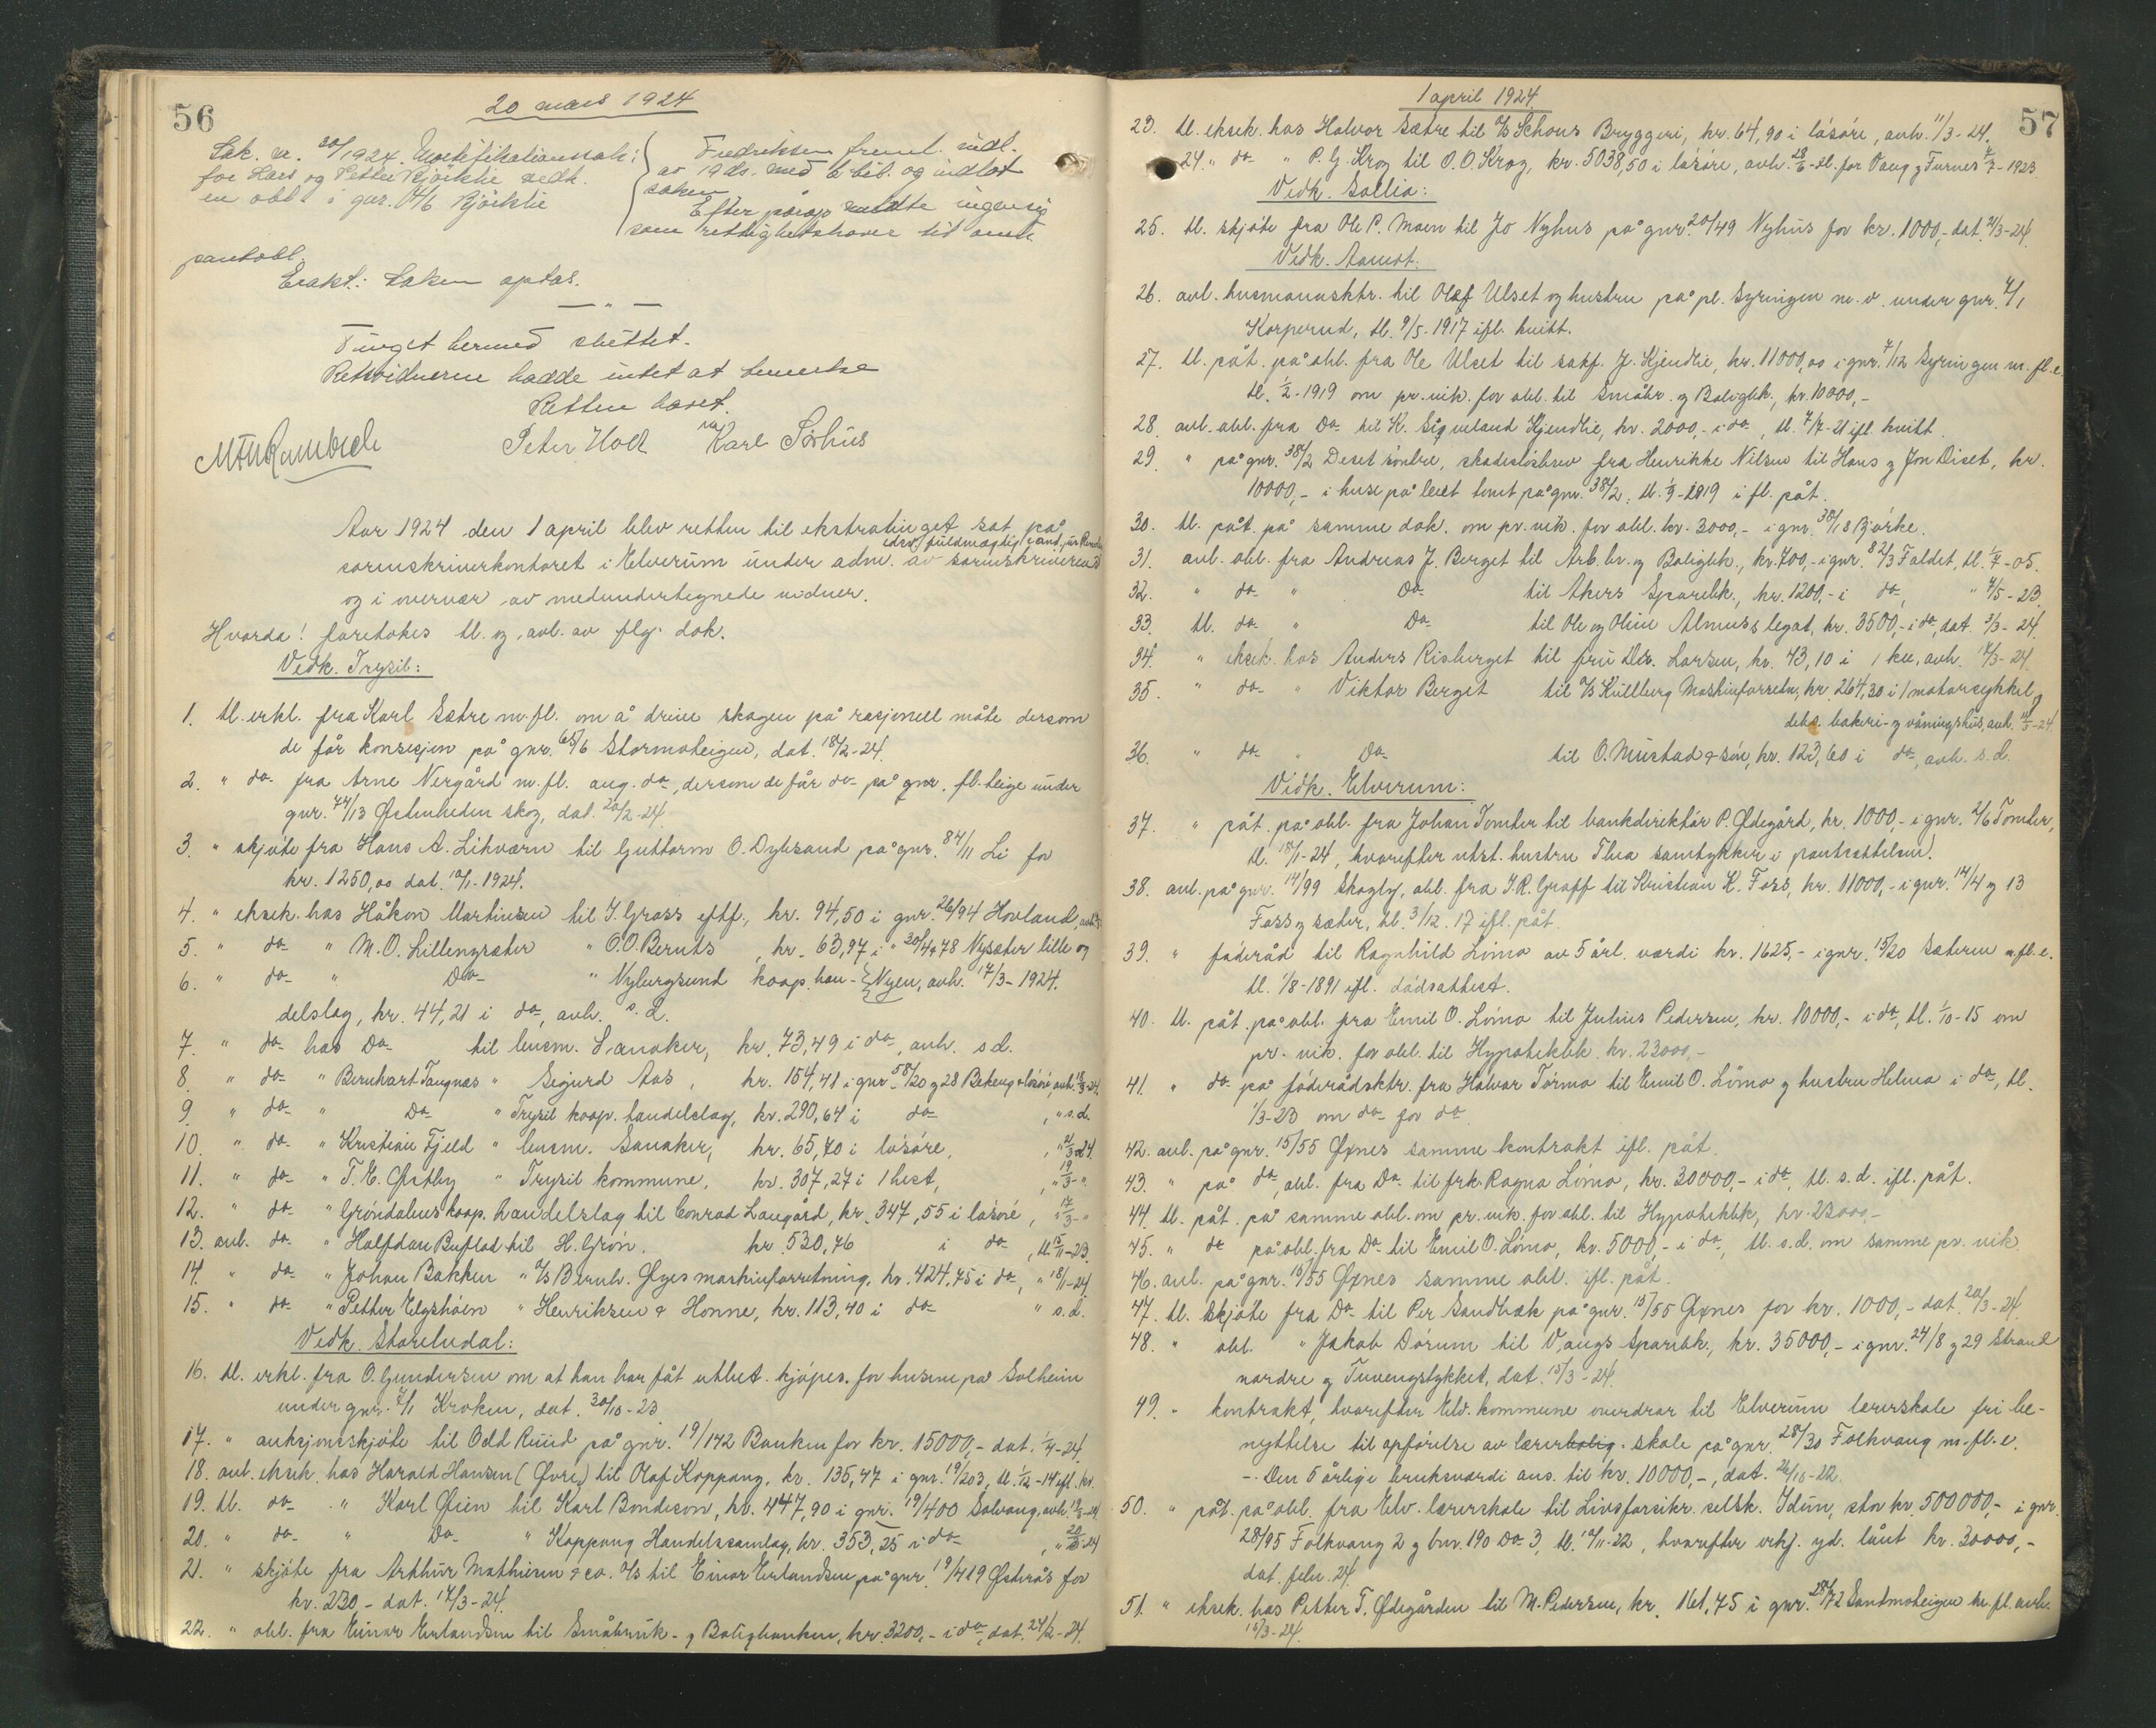 56
20 mars 1924
Sak. nr. 20/1924. Mortifikationssak:
for Hans og Petter Kjöiklie vedk.
en obl. i gnr. Kjöiklie
Fredriksen freml. indl.
av 19 ds. med 6 bil. og indlot
saken
Efter påråp meldte ingen sig
som rettighetshaver til omh.
pantobl.
Erakt: Saken optas.
— „ —
Tinget hermed sluttet.
Retsvidnerne hadde intet at bemerke
Retten hævet.
Peter Holt Karl Sørhus
Aar 1924 den 1 april blev retten til ekstratinget sat på
edsv. fuldmægtig cand. jur.
sorenskriverkontoret i Elverum under adm. av sorenskriveren
og i overvær av medundertegnede vidner.
Hvorda! foretokes tl. og avl. av flg. dok.
Vedk. Trysil:
1. tl. erkl. fra Karl Sætre m. fl. om å drive skogen på rasjonell måte dersom
de får konsesjon på gnr. 65/6 Stormoteigen, dat. 18/2-24.
2. " do fra Arne Nergård m. fl. ang. do, dersom de får do på gnr. fl. teige under
gnr. 74/13 Østenheden skog, dat. 20/2-24
3. " skjöte fra Hans A. Likværn til Guttorm O. Dybsand på gnr. 84/11 Li for
kr. 1250,00 dat. 10/1-1924.
4. " eksek. hos Håkon Martinsen til J. Grass eftf., kr. 94,50 i gnr. 26/94 Hovland,
5. " do " M. O. Lillengsæter " O. O. Beruts, kr. 63,97 i " 20/44 78 Nysæter lille og
6. " do " Do " Nybergsund koop. han- { Nyen, avh. 17/3-1924.
delslag, kr. 44,21 i do, avh. s. d.
7. " do hos Do til lensm. Sanaker, kr. 73,49 i do, avh. s d.
8. " do " Bernhart Tangnes " Sigurd Aas, kr. 154,41 i gnr 58/20 g 28 Bekeng o løsøre, avh. 18/3-24.
9. " do " Do " Trysil koop. handelslag, kr. 290,64 i do , " s.d.
10. " do " Kristian Fjeld " lensm. Sanaker, kr. 65,70 i løsøre, , " 21/3-24.
11. " do " T. E. Østby " Trysil kommune, kr. 307,27 i 1 hest, , " 19/3 "
12. " do " Gröndalens koop. handelslag til Conrad Langård, kr. 347,55 i løsøre, " 17/3 "
13. avl. do " Halfdan Buflod til H. Grön. kr. 530,76 i do , tl. 15/11-23
14. " do " Johan Bakken " A/S Bernh. Øyes maskinforretning, kr. 424,75 i do, " 18/1-24
15. " do " Petter Elgshöen " Henriksen & Honne, kr. 113,40 i do " s.d.
Vedk. Storelvdal:
16. tl. erkl. fra O. Gundersen om at han har fåt utbet. kjöpes. for husene på Solheim
under gnr. 7/1 Kroken, dat. 30/10-23
17. " auksjonsskjöte til Odd Ruud på gnr. 19/142 Banken for kr. 15000,- dat. 1/4-24.
18. avl. eksek. hos Harald Hansen (Øvre) til Olaf Koppang, kr. 135,47 i gnr. 19/203, tl. 1/12-14 ifl. kv.
19. tl. do " Karl Øien til Karl Bondeson, kr. 447,90 i gnr. 19/400 Solvang, avh. 19/3-24
20. " do " Do " Koppang Handelssamlag, kr. 353,25 i do , " 20/3-24
21. " skjöte fra Arthur Mathiesen & co. A/S til Einar Erlandsen på gnr. 19/419 Østerås for
kr. 230 - dat. 14/3-24.
22. " obl. fra Einar Erlandsen til Småbruk- og Boligbanken, kr. 3200,- i do, dat. 24/2-24.
1 april 1924.
57
23. tl. eksek. hos Halvor Sætre til A/S Schous Bryggeri, kr. 64,90 i løsøre, avh. 11/3-24.
24 " do " P. G. Krog til O. O. Krog, kr. 5038,50 i løsøre, avh. 28/6 tl. for Vang g Furnes 4/7-1923
Vedk. Sollia:
25. tl. skjöte fra Ole P. Moen til Jo Nyhus på gnr. 20/49 Nyhus for kr. 1000,- dat. 21/3-24.
Vedk. Aamot.
26. avl. husmannsktr. til Olaf Ulset og hustru på pl. Syringen m. v. under gnr. 7/1
Korperud, tl. 9/5-1917 ifl. kvitt.
27. tl. påt. på obl. fra Ole Ulset til sakf. J. Kjendlie, kr. 11000,00 i gnr. 7/12 Syringen m. fl. e.
tl. 1/2-1919 om pr. vik. for obl. til Småbr. og Boligbk., kr. 10000,-
28. avl. obl. fra Do til K. Sigveland Kjendlie, kr. 2000,- i do, tl. 7/7-21 ifl. kvitt.
29. " på gnr. 38/2 Deset söndre, skadeslösbrev fra Henrikke Nilsen til Hans g Jon Diset, kr.
10000,- i huse på leiet tomt på gnr. 38/2, tl. 1/9-1919 i fl. påt.
30. tl. påt. på samme dok. om pr. vik. for obl. kr. 3000,- i gnr. 38/18 Bjørke.
31. avl. obl. fra Andreas J. Berget til Arb. br. og Boligbk., kr. 700,- i gnr. 82/3 Faldet, tl. 1/7-05.
32. " do " Do til Akers Sparebk., kr. 1200,- i do, " 4/5-23
33. tl. do " Do til Ole og Oline Almuss legat, kr. 3500,- i do, dat. 3/3-24.
34. " eksek. hos Anders Risberget til fru Larsen, kr. 43,10 i 1 ku, avh. 17/3-24.
35. " do " Viktor Berget til A/S Kullberg Maskinforretn., kr. 264,30 i 1 motorsykkel,
bakeri- g våningshus, avh. 14/3-24
36. " do " Do til O. Mustad & sön, kr. 123,60 i do, avh. s. d.
Vedk. Elverum:
37. " påt. på obl. fra Johan Tomter til bankdirektör P. Ødegård, kr. 1000,- i gnr. 2/6 Tomter,
tl. 18/1-24, hvorefter utst. hustru Thea samtykker i pantsettelsen.
38. avl. på gnr. 14/99 Skogly, obl. fra J. R. Graff til Kristian K. Foss, kr. 11000,- i gnr. 14/4 g 13
Foss g sæter, tl. 3/12. 17 ifl. påt.
39. " föderåd til Ragnhild Lömo av 5 årl. værdi kr. 1625,- i gnr. 15/20 Sæteren m. fl. e.
tl. 1/8-1891 ifl. dödsattest.
40. tl. påt. på obl. fra Emil O. Lömo til Julius Pedersen, kr. 10000,- i do, tl. 1/10-15 om
pr. vik. for obl. til Hypotekbk. kr. 23000,-
41. " do på föderådsktr. fra Halvor Törmo til Emil O. Lömo g hustru Helma i do, tl.
1/3-23 om do for do
42. avl. på gnr. 15/55 Øxnes samme kontrakt ifl. påt.
43. " på do, obl. fra Do til frk. Ragna Lömo, kr. 30000,- i do, tl. s. d. ifl. påt.
44. tl. påt. på samme obl. om pr. vik. for obl. til Hypotekbk., kr. 23000,-
45. " do på obl. fra Do til Emil O. Lömo, kr. 5000,- i do, tl. s. d. om samme pr. vik
46. avl. på gnr. 15/55 Øxnes samme obl. ifl. påt.
47. tl. skjöte fra Do til Per Sandbæk på gnr. 15/55 Øxnes for kr. 1000,- dat. 20/3-24
48. " obl. " Jakob Dörum til Vangs Sparebk., kr. 35000,- i gnr. 24/8 g 29 Strand
nordre g Tuvengstykket, dat. 15/3-24.
49. " kontrakt, hvorefter Elv. kommune overdrar til Elverum lærerskole fri be-
nyttelse til opförelse av lærerbolig- skole på gnr. 28/30 Folkvang m. fl. e.
-. Den 5 årlige bruksværdi ans. til kr. 10000,-, dat. 26/10-22.
50. " påt. på obl. fra Elv. lærerskole til Livsforsikr. selsk. Idun, stor kr. 500000,- i gnr.
28/95 Folkvang 2 g bnr. 190 Do 3, tl. 10/11-22, hvorefter erkj. yd. lånt kr. 30000,-
dat. febr. 24.
51. " eksek. hos Petter T. Ødegården til M. Pedersen, kr. 161,75 i gnr. 28/72 Sandmoteigen m. fl. avh.
15/3-24.